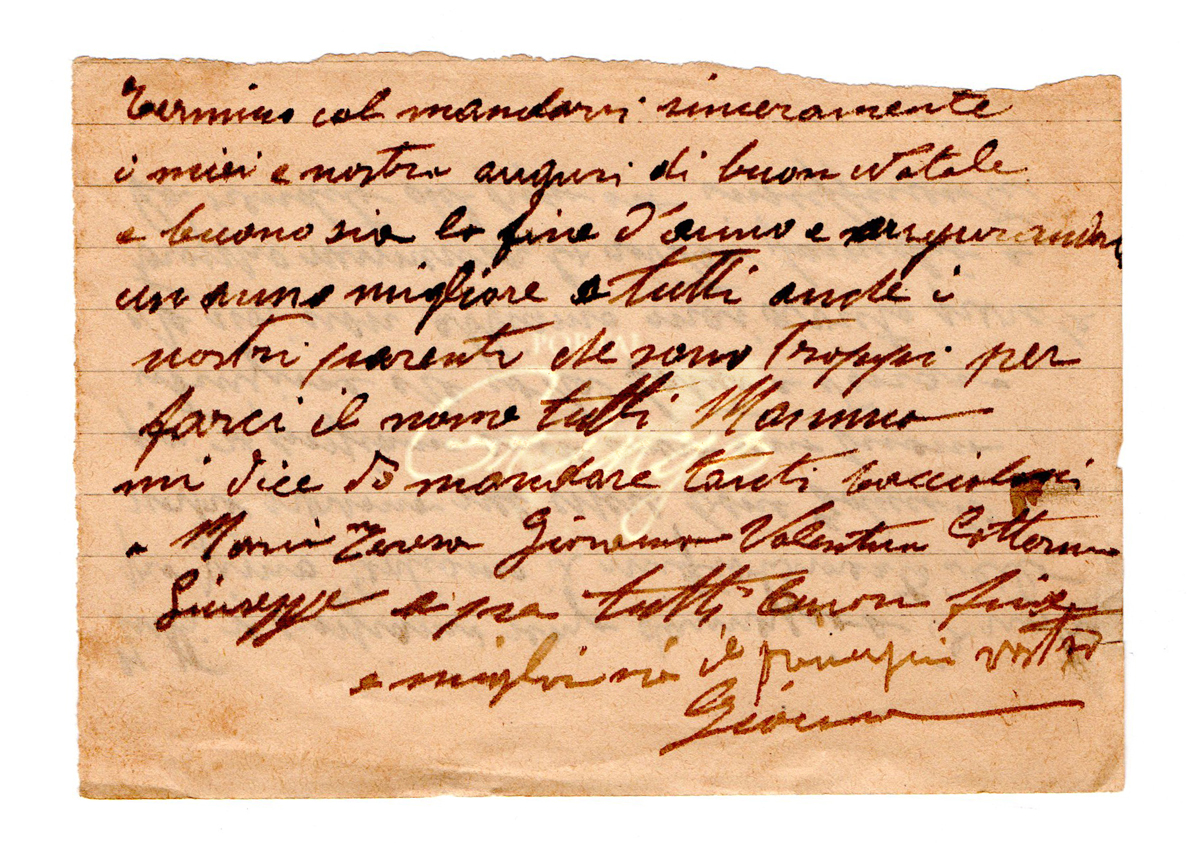 Termino col mandarvi sinceramente
i miei e nostri auguri di buon Natale
e buono sia la fine d'anno e augurandovi
un anno migliore a tutti anche i
nostri parenti che sono troppi per
farci il nome tutti
mi dice di mandare tanti
a Maria Teresa Giovanna Valentina
Giuseppe e per tutti buon fine
e migliori sia il vostro